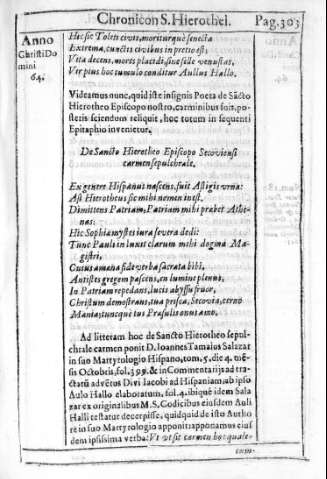 Chronicon S. Hierothei. Pag. 303
Anno
Christi Do
mini
64.
Hic sic Toletis civis, moriturque senecta
Extrema, cunctis civibus in pretio est;
Vita decens, mores placidi, sine fide venustas,
Vir pius hoc tumulo conditur Aullus Hallo.
Videamus nunc, quid iste insignis Poeta de Sācto
Hierotheo Episcopo nostro, carminibus suis, po-
steris sciendum reliquit, hoc totum in sequenti
Epitaphio invenietur.
De Sancto Hierotheo Episcopo Secoviensi
carmen sepulchrale.
Ex genere Hispanus nascens, fuit Astigis urna:
Ast Hierotheus sic mihi nemen inest,
Dimittens Patriam, Patriam mihi præbet Athe-
nas:
Hic Sophia mystes iura severa dedi:
Tunc Pauli in luxit clarum mihi dogma Ma-
gistri,
Cuius amæna fide verba sacrata bibi,
Antistes gregem pascens, en lumine plenus,
In Patriam repedans, lucis abyssu fruor,
Christum demostrans, tua prisca, Secovia, cerno
Mania; tuncque tus Præsulis onus amo.
Ad litteram hoc de Sancto Hierotheo sepul-
chrale carmen ponit D. Ioannes Tamaius Salazar
in suo Martyrologio Hispano, tom. 5. die 4. mē-
sis Octobris, fol. 399. & in Commentarijs ad tra-
ctatū advētus Divi Iacobi ad Hispaniam, ab ipso
Aulo Hallo elaboratum, fol. 4. ibique idem Sala
zar ex originalibus M. S. Codicibus eiusdem Auli
Halli testatur decerpisse, quidquid de isto Autho
re in suo Martyrologio apponit: apponamus eius
dem ipsissima verba: Ut vesit carmen hoc quale-